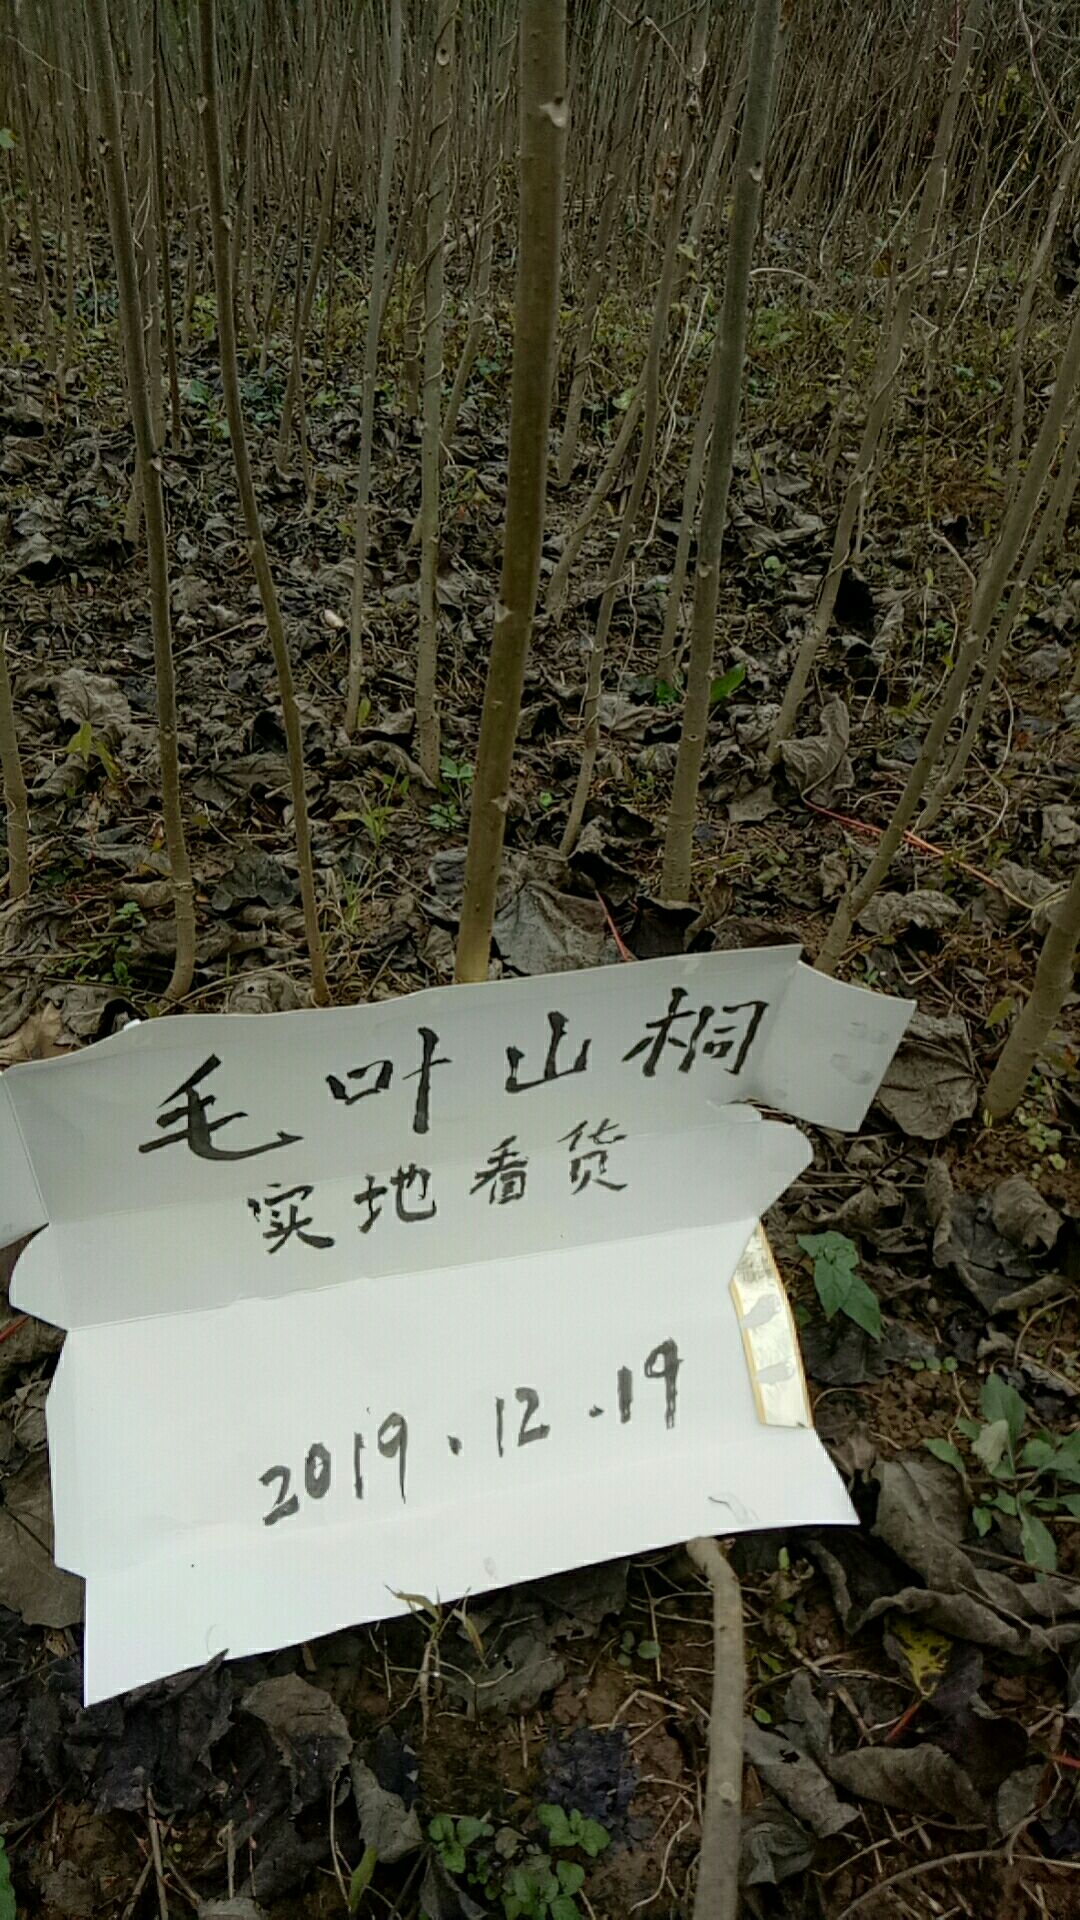 毛叶山桐
实地看货
2019.12.19